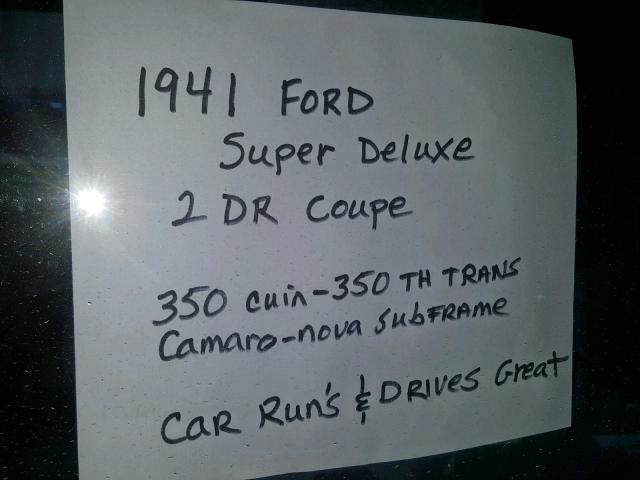 1941 FORD
Super Deluxe
2 DR Coupe
350 cuin-350 TH TRANS
Camaro-nova SubFRAME
CAR Run's & DRIVES Great